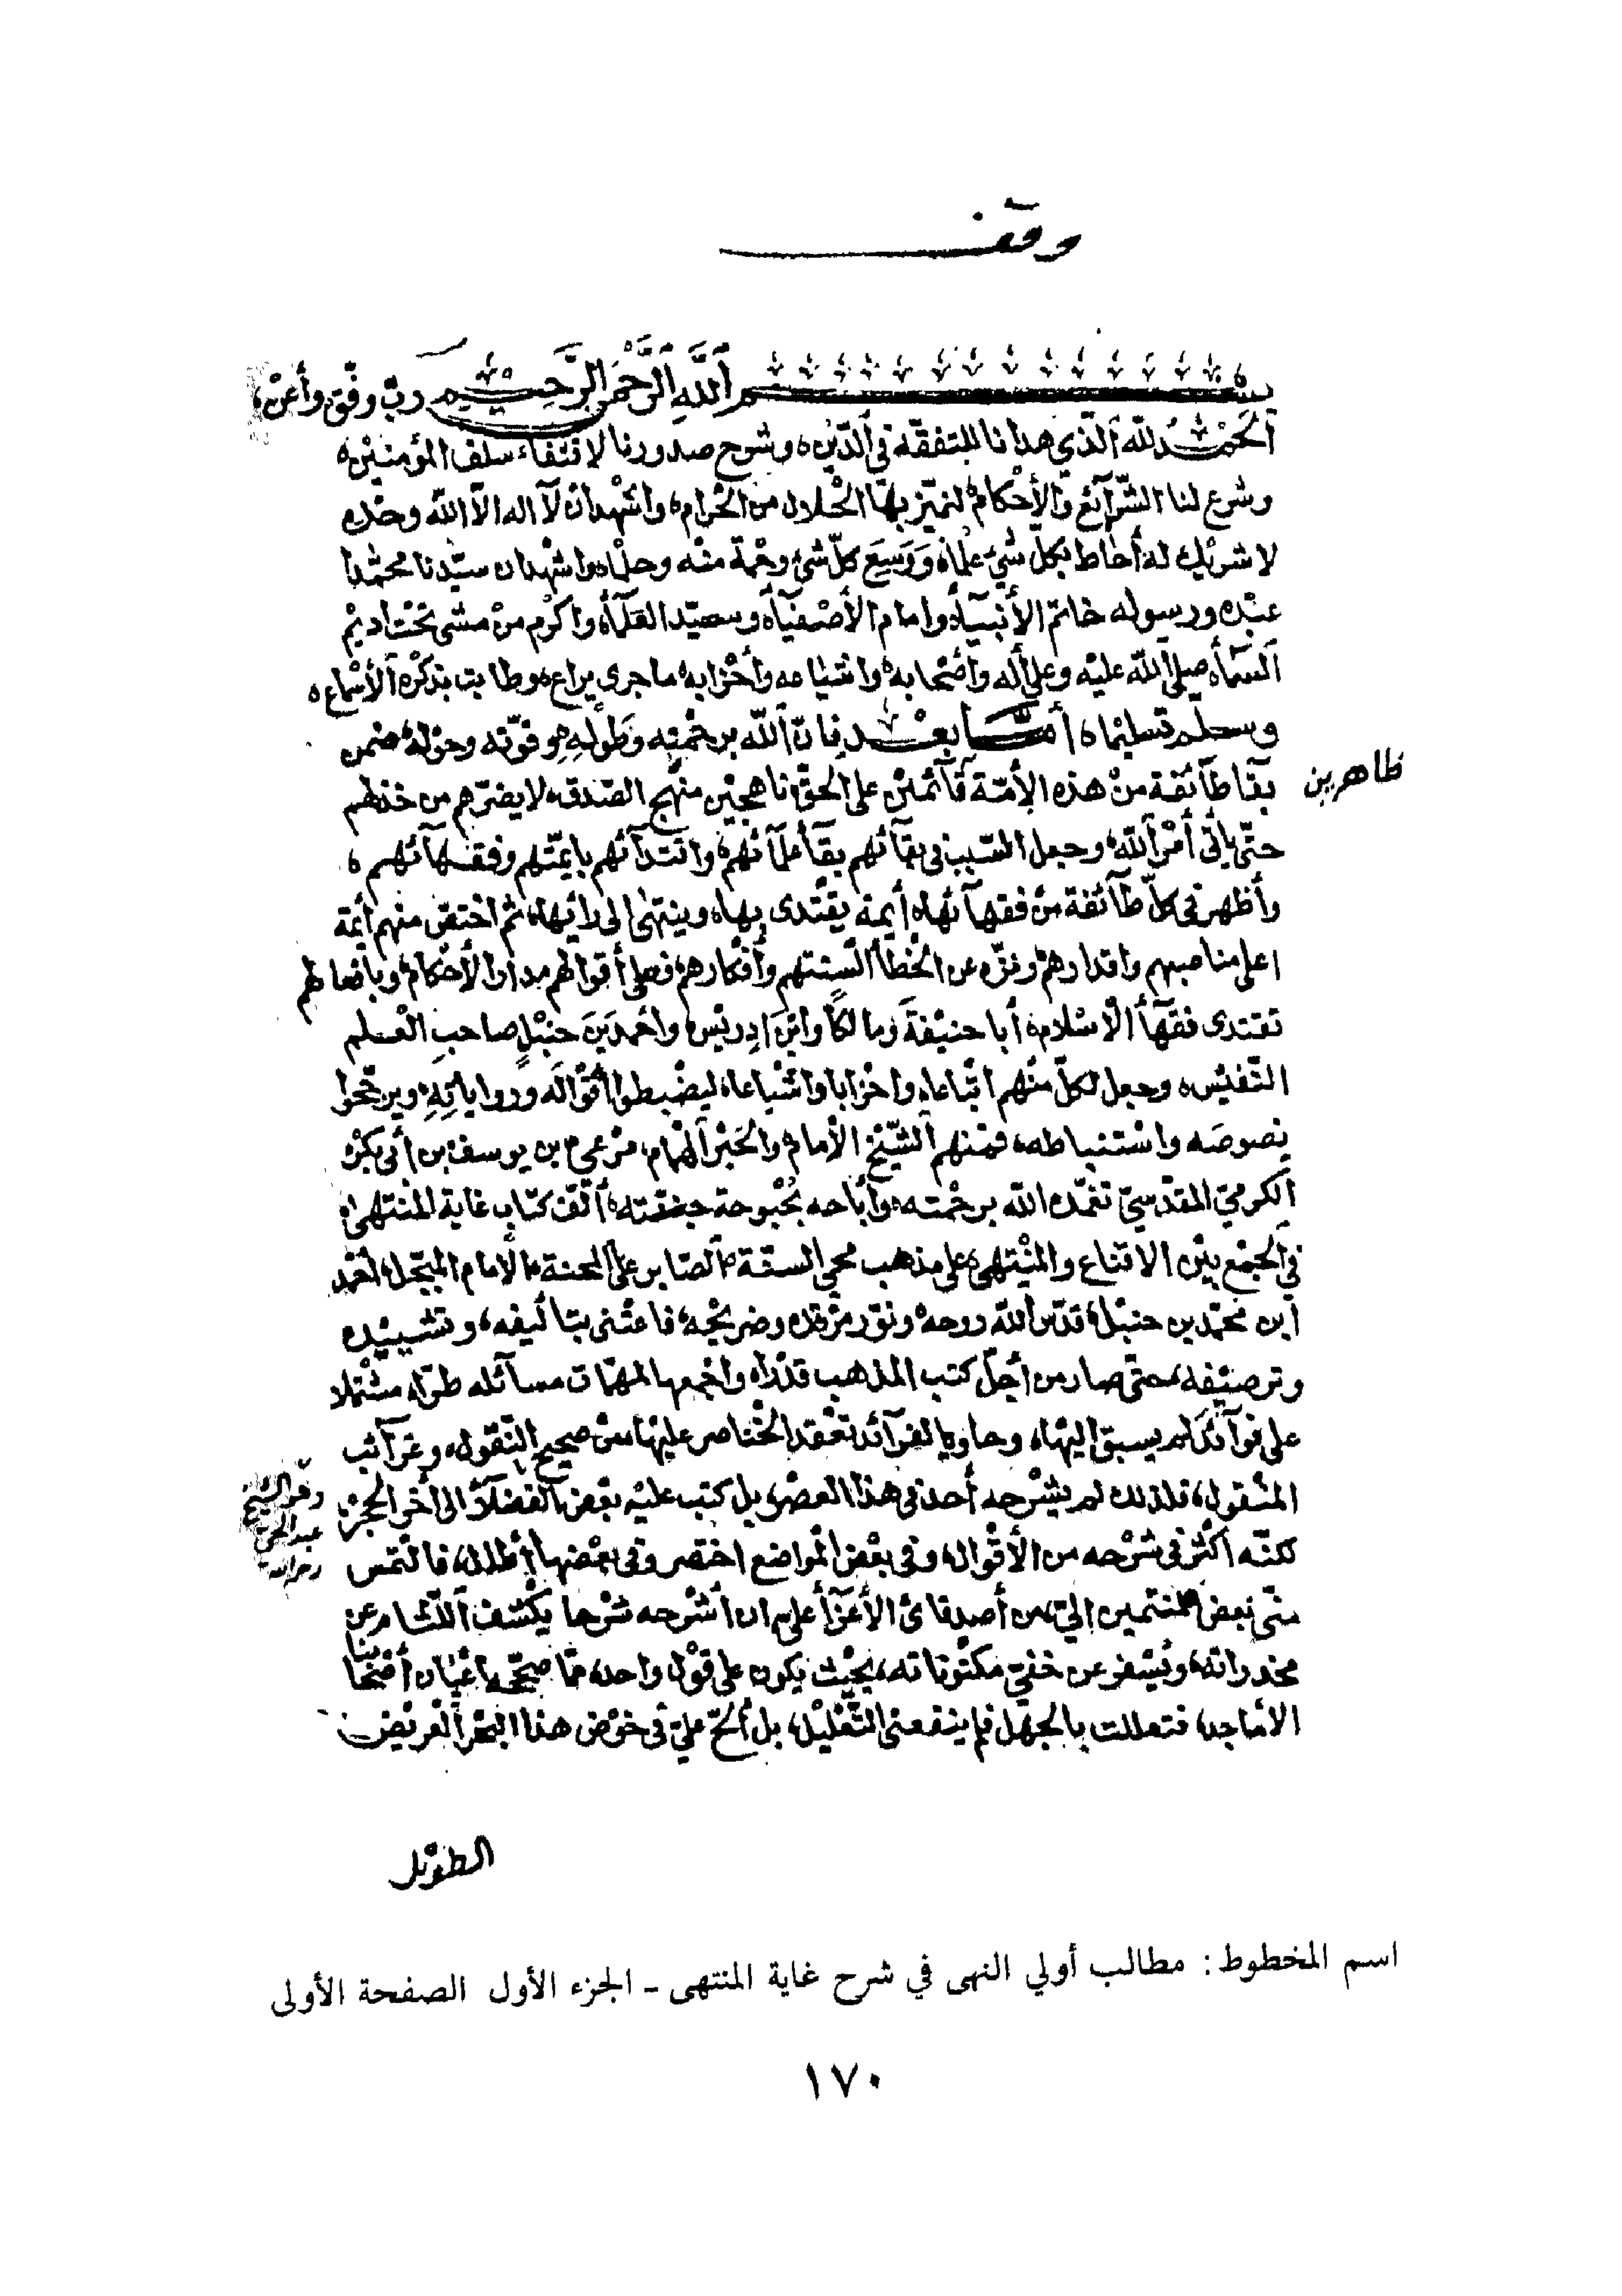 وقف
بسم الله الرحمن الرحيم رب وفق وأعن
الحمد لله الذي هدانا للتفقه في الدين، وشرح صدورنا لاقتفاء سلف المؤمنين،
وشرع لنا الشرآئع والأحكام، لنميز بها الحلال من الحرام، واشهد ان لآ اله الا الله وحده
لا شريك له أحاط بكل شيء علما، ووسع كل شئ رحمة منه وحلما، واشهد ان سيدنا محمدا
عبده ورسوله خاتم الأنبيآء، وامام الأصفيآء، وسيد العلمآء، واكرم من مشى تحت اديم
السمآء، صلى الله عليه وعلى أله وأصحابه، واشياعه وأحزابه، ما جرى يراع، وطابت بذكره الأسماع،
وسلم تسليما، أما بعد فان الله برحمته وطوله، وقوته وحوله، ضمن
بقا طآئفة من هذه الأمة قآئمين على الحق، ناهجين منهج الصدق، لا يضرهم من خذلهم
ظاهرين
حتى يأتى أمر الله، وجعل السبب في بقآئهم بقآ علمآئهم، واقتدآئهم بايمتهم وفقهآئهم،
وأظهر في كل طآئفة من فقهآئها، أيمة يقتدى بها، وينتهى الى رائيها، ثم اختص منهم أيمة
اعلى مناصبهم واقدارهم، ونزه عن الخطأ ألسنتهم وأفكارهم، فعلى أقوالهم مدار الأحكام، وبافعالهم
تقتدى فقهآ الاسلام، أبا حنيفة ومالكا وابن ادريس، واحمد بن حنبل صاحب العلم
النفيس، وجعل لكل منهم اتباعا، واحزابا واشياعا، ليضبطوا أقواله ورواياته، ويرجحوا
نصوصه واستنباطه، فمنهم الشيخ الامام، والحبر الهمام، مرعي بن يوسف بن أبي بكر
الكرمي المقدسي تغمده الله برحمته، وأباحه بحبوحة جنته، ألف كتاب غاية المنتهى،
في الجمع بين الاقناع والمنتهى، على مذهب محي السنة، الصابر على المحنة، الامام المبجل، احمد
ابن محمد بن حنبل، قدس الله روحه، ونور مرقده وضريحه، فاعتنى بتأليفه، وتشييده
وترصيفه، حتى صار من أجل كتب المذهب قدرا، واجمعها لمهمات مسآئله طرا، مشتملا
على فوآئد لم يسبق اليها، وحاويا لفرآئد تعقد الخناصر عليها، من صحيح النقول، وغرآئب
المنقول، فلذلك لم يشرحه أحد في هذا العصر، بل كتب عليه بعض الفضلآ الى أخر الجزء
لكنه أكثر في شرحه من الأقوال، وفي بعض المواضع اختصر وفي بعضها أطال، فالتمس
مني بعض المنتمين الي، من أصدقائ الأعزآ علي، ان أشرحه شرحا يكشف اللثام عن
مخدراته، ويسفر عن خفي مكنوناته، بحيث يكون على قول واحد، مما صححه اعيان أصحابنا
الأماجد، فتعللت بالجهل فلم ينفعنى التعليل، بل ألح علي في خوض هذا البحر العريض
الطويل
اسم المخطوط: مطالب أولي النهى في شرح غاية المنتهى - الجزء الأول الصفحة الأولى
١٧٠